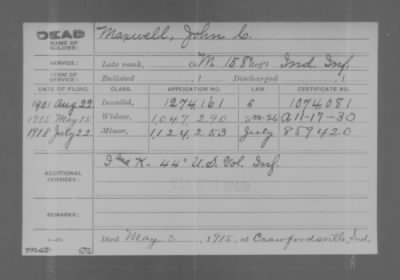 DEAD Maxwell, John C.
NAME OF SOLDIER:
SERVICE: Late rank, M. 158 Reg't Ind. Inf.
TERM OF SERVICE: Enlisted , 1 Discharged , 1
DATE OF FILING. CLASS. APPLICATION NO. LAW. CERTIFICATE NO.
1901 Aug 22 Invalid, 1274161 1074081
1915 May 15 Widow, 1,047,290 A 11-17-30
1918 July 22 Minor, 1,124,253 July 859420
K- 44" U.S. Vol. Inf.
ADDITIONAL SERVICES:
REMARKS:
Died May 3, 1915, at Crawfordsville, Ind.